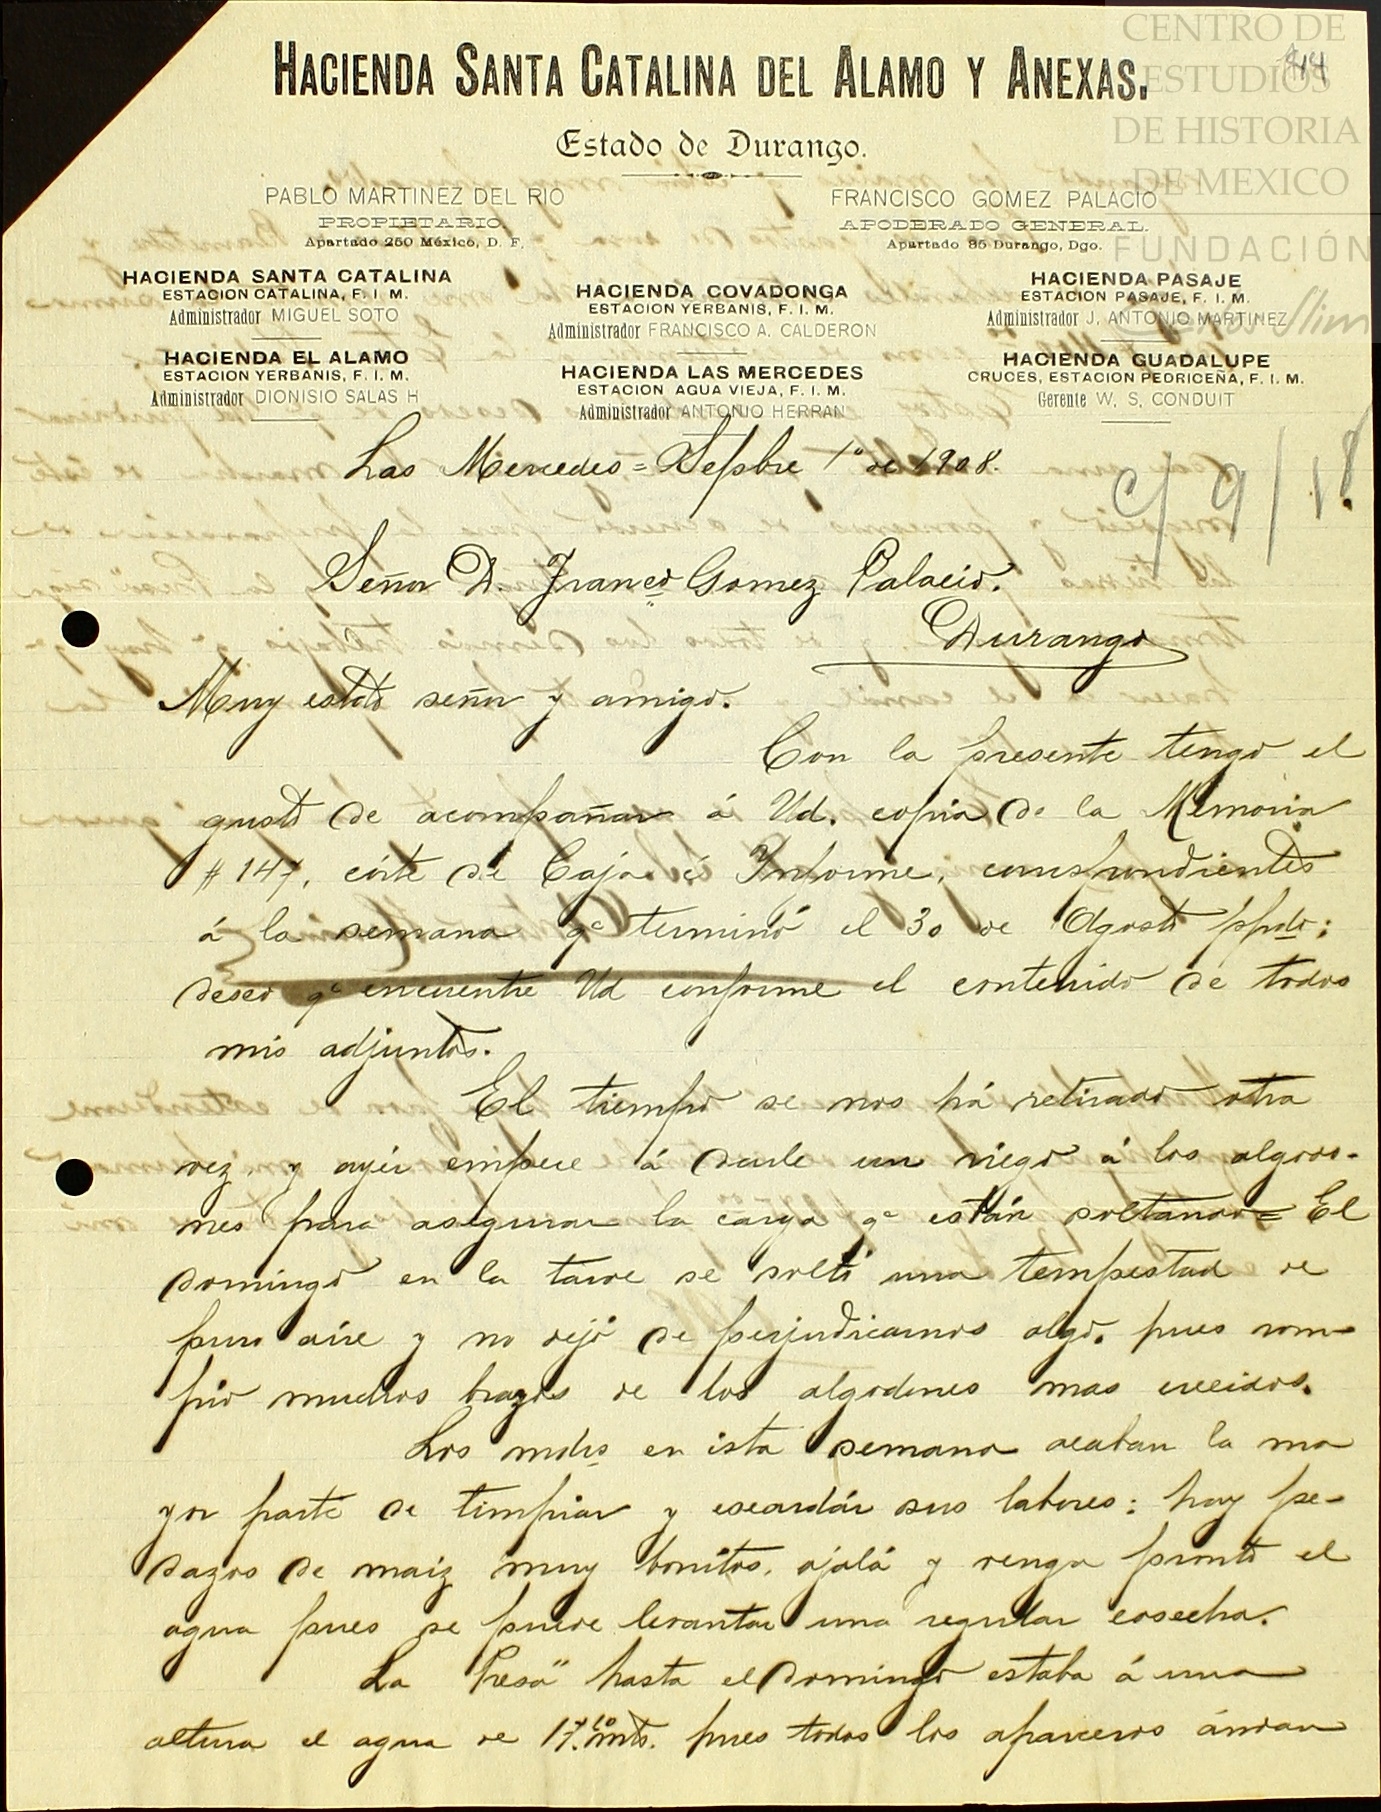 CENTRO DE
ESTUDIOS
DE HISTORIA
DE MEXICO
FUNDACIÓN
Slim
HACIENDA SANTA CATALINA DEL ALAMO Y ANEXAS.
Estado de Durango.
PABLO MARTINEZ DEL RIO
PROPIETARIO.
Apartado 250 México, D. F.
FRANCISCO GOMEZ PALACIO
APODERADO GENERAL.
Apartado 85 Durango, Dgo.
HACIENDA SANTA CATALINA
ESTACION CATALINA, F. I. M.
Administrador MIGUEL SOTO
HACIENDA EL ALAMO
ESTACION YERBANIS, F. I. M.
Administrador DIONISIO SALAS H
HACIENDA COVADONGA
ESTACION YERBANIS, F. I. M.
Administrador FRANCISCO A. CALDERON
HACIENDA LAS MERCEDES
ESTACION AGUA VIEJA, F. I. M.
Administrador ANTONIO HERRAN
HACIENDA PASAJE
ESTACION PASAJE, F. I. M.
Administrador J. ANTONIO MARTINEZ
HACIENDA GUADALUPE
CRUCES, ESTACION PEDRICEÑA, F. I. M.
Gerente W. S. CONDUIT
Las Mercedes = Sepbre 1º de 1908.
c/ 9/18
Señor D. Franco Gomez Palacio.
Durango
Muy estdo señor y amigo.
Con la presente tengo el
gusto de acompañar á Ud. copia de la Memoria
# 147, córte de Caja é Informe, correspondientes
á la semana qe terminó el 30 de Agosto ppdo:
deseo qe encuentre Ud conforme el contenido de todos
mis adjuntos.
El tiempo se nos há retirado otra
vez, y ayér empece á darle un riego á los algodo-
nes para asegurar la carga qe están soltando= El
domingo en la tarde se soltó una tempestad de
puro aire y no dejó de perjudicarnos algo, pues rom-
pió muchos brazos de los algodones mas crecidos.
Los mdrs en ista semana acaban la ma
yor parte de limpiar y escardár sus labores: hay pe-
dazos de maiz muy bonitos, ojalá y venga pronto el
agua pues se puede levantar una regular cosecha.
La "Presa" hasta el domingo estaba á una
altura el agua de 17.10 mts. pues todos los aparceros ándan